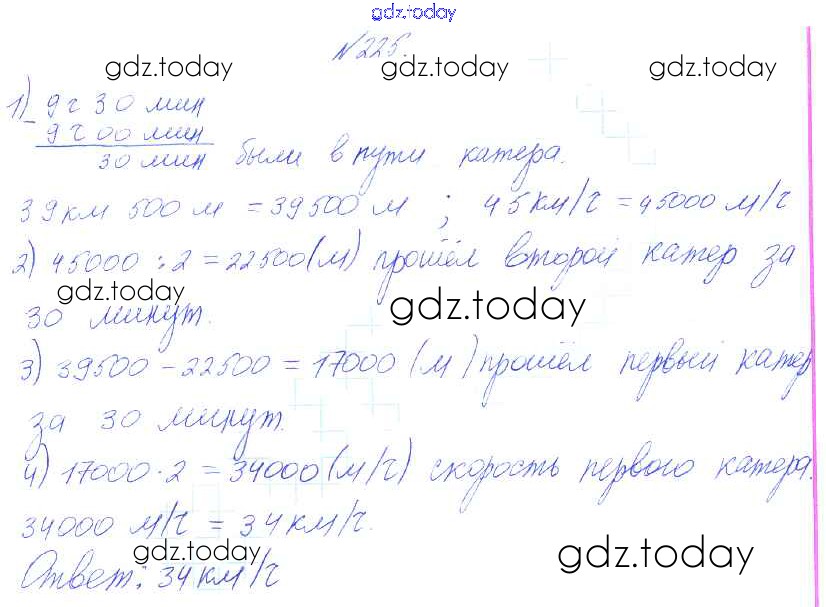 gdz.today
№225.
gdz.today gdz.today gdz.today
1) 9 ч 30 мин
- 9 ч 00 мин
30 мин были в пути катера.
39 км 500 м = 39500 м ; 45 км/ч = 45000 м/ч
2) 45000 : 2 = 22500 (м) прошёл второй катер за
gdz.today gdz.today gdz.today
30 минут.
3) 39500 - 22500 = 17000 (м) прошёл первый катер
за 30 минут.
4) 17000 · 2 = 34000 (м/ч) скорость первого катера.
34000 м/ч = 34 км/ч.
gdz.today gdz.today
Ответ: 34 км/ч